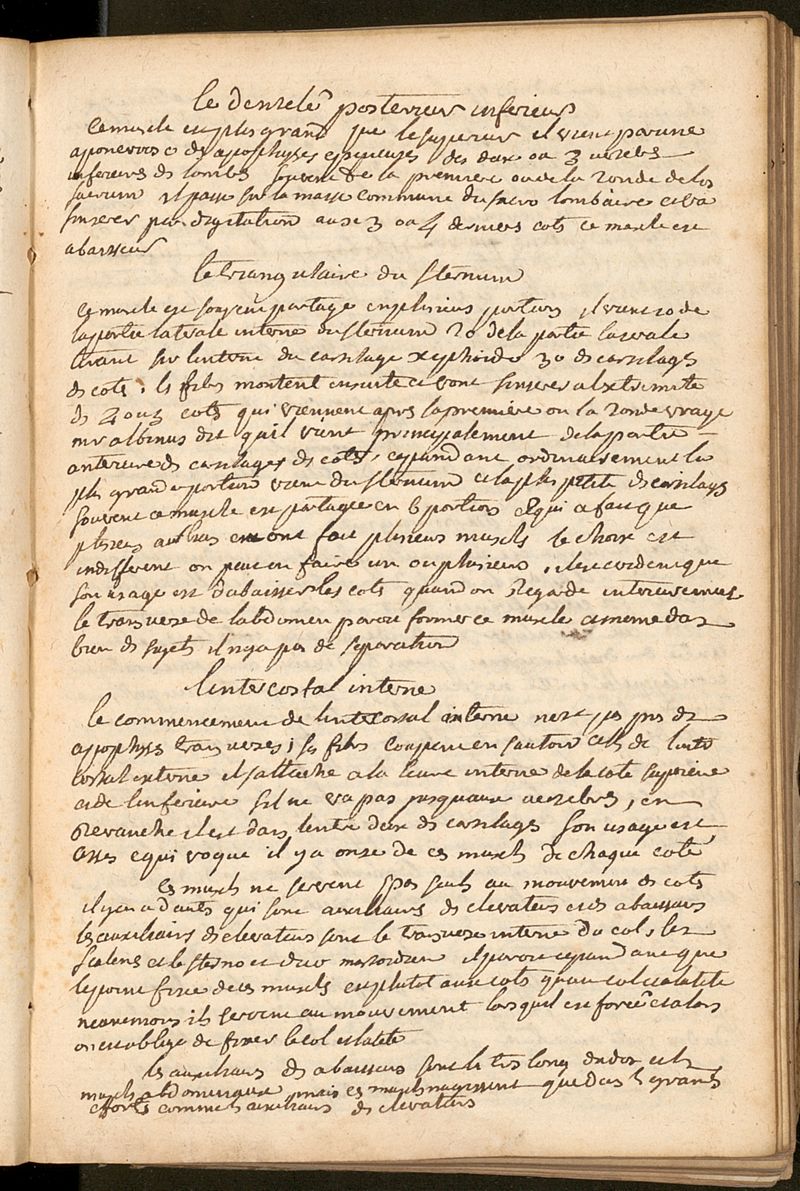 le dentelé posterieur inferieur
ce muscle est plus grand que le superieur il vient par une
apponevrose des apophyses epineuses des deux ou 3 vertebres
inferieurs de lombes souvent de la premiere ou de la 2onde de los
sacrum il passe sur la masse commune du sacro lombaire et va
sinserer par digitation aux 3 ou 4 derniers cots ce muscle est
abaisseur
le triangulaire du sternum
ce muscle est souvent partagé en plusieurs portions il vient 1o de
la partie laterale interne du sternum 2o de la partie laterale
sur linterne du cartilage xyphoide 3o des cartilages
des cots, les fibres montent ensuite et vont sinserer a lextremité
de 4 ou 5 cots qui viennent apres la premiere ou la 2onde vraye
mr albinus dit quil vient principalement de la partie
anterieure des cartilages des cots, cependant ordinairement la
plus grande portion vient du sternum et la plus petite des cartilages
souvent ce muscle est partagé en 6 portions ce qui a fait que
plusieurs autheurs en ont fait plusieurs muscles le choix est
indifferent on peut en faire un ou plusieurs, il est certain que
son usage est dabaisser les cots quand on regarde interieurement
le transverse de labdomen paroit former ce muscle et meme dans
bien des sujets il ny a pas de separation
lintercostal interne
le commencement de lintercostal interne nest pas pres des
apophyses transverses; ses fibres coupent en sautoir celles de linter
costal externe il sattache a la levre interne de la cote superieure
et de linferieure sil ne va pas jusquaux vertebres, en
revanche il est dans lentre deux des cartilages son usage est
assés equivoque il y a onze de ces muscles de chaque coté
ces muscles ne servent pas seuls au mouvement des cots
il y en a dauts qui sont auxiliaires des elevateurs et des abaisseurs
les auxiliairs des elevateurs sont le transverse interne du col, les
scalenes et le sterno et cleido mastoidien il paroit cependant que
le point fixe de ces muscles est plutot aux cots quau col et a la tete
neanmoins ils servent au mouvement lorsquil est forcé et alors
on est obligé de fixer le col et la tete
les auxiliairs des abaisseurs sont le tres long du dos et les
muscles abdominaux mais ces muscles nagissent que dans les grands
efforts comme les auxiliairs des elevateurs